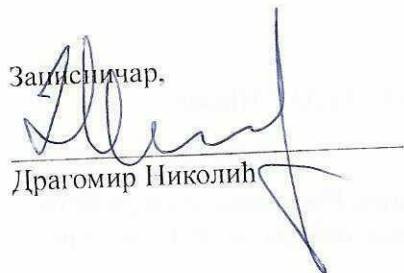 Записничар,
Драгомир Николић